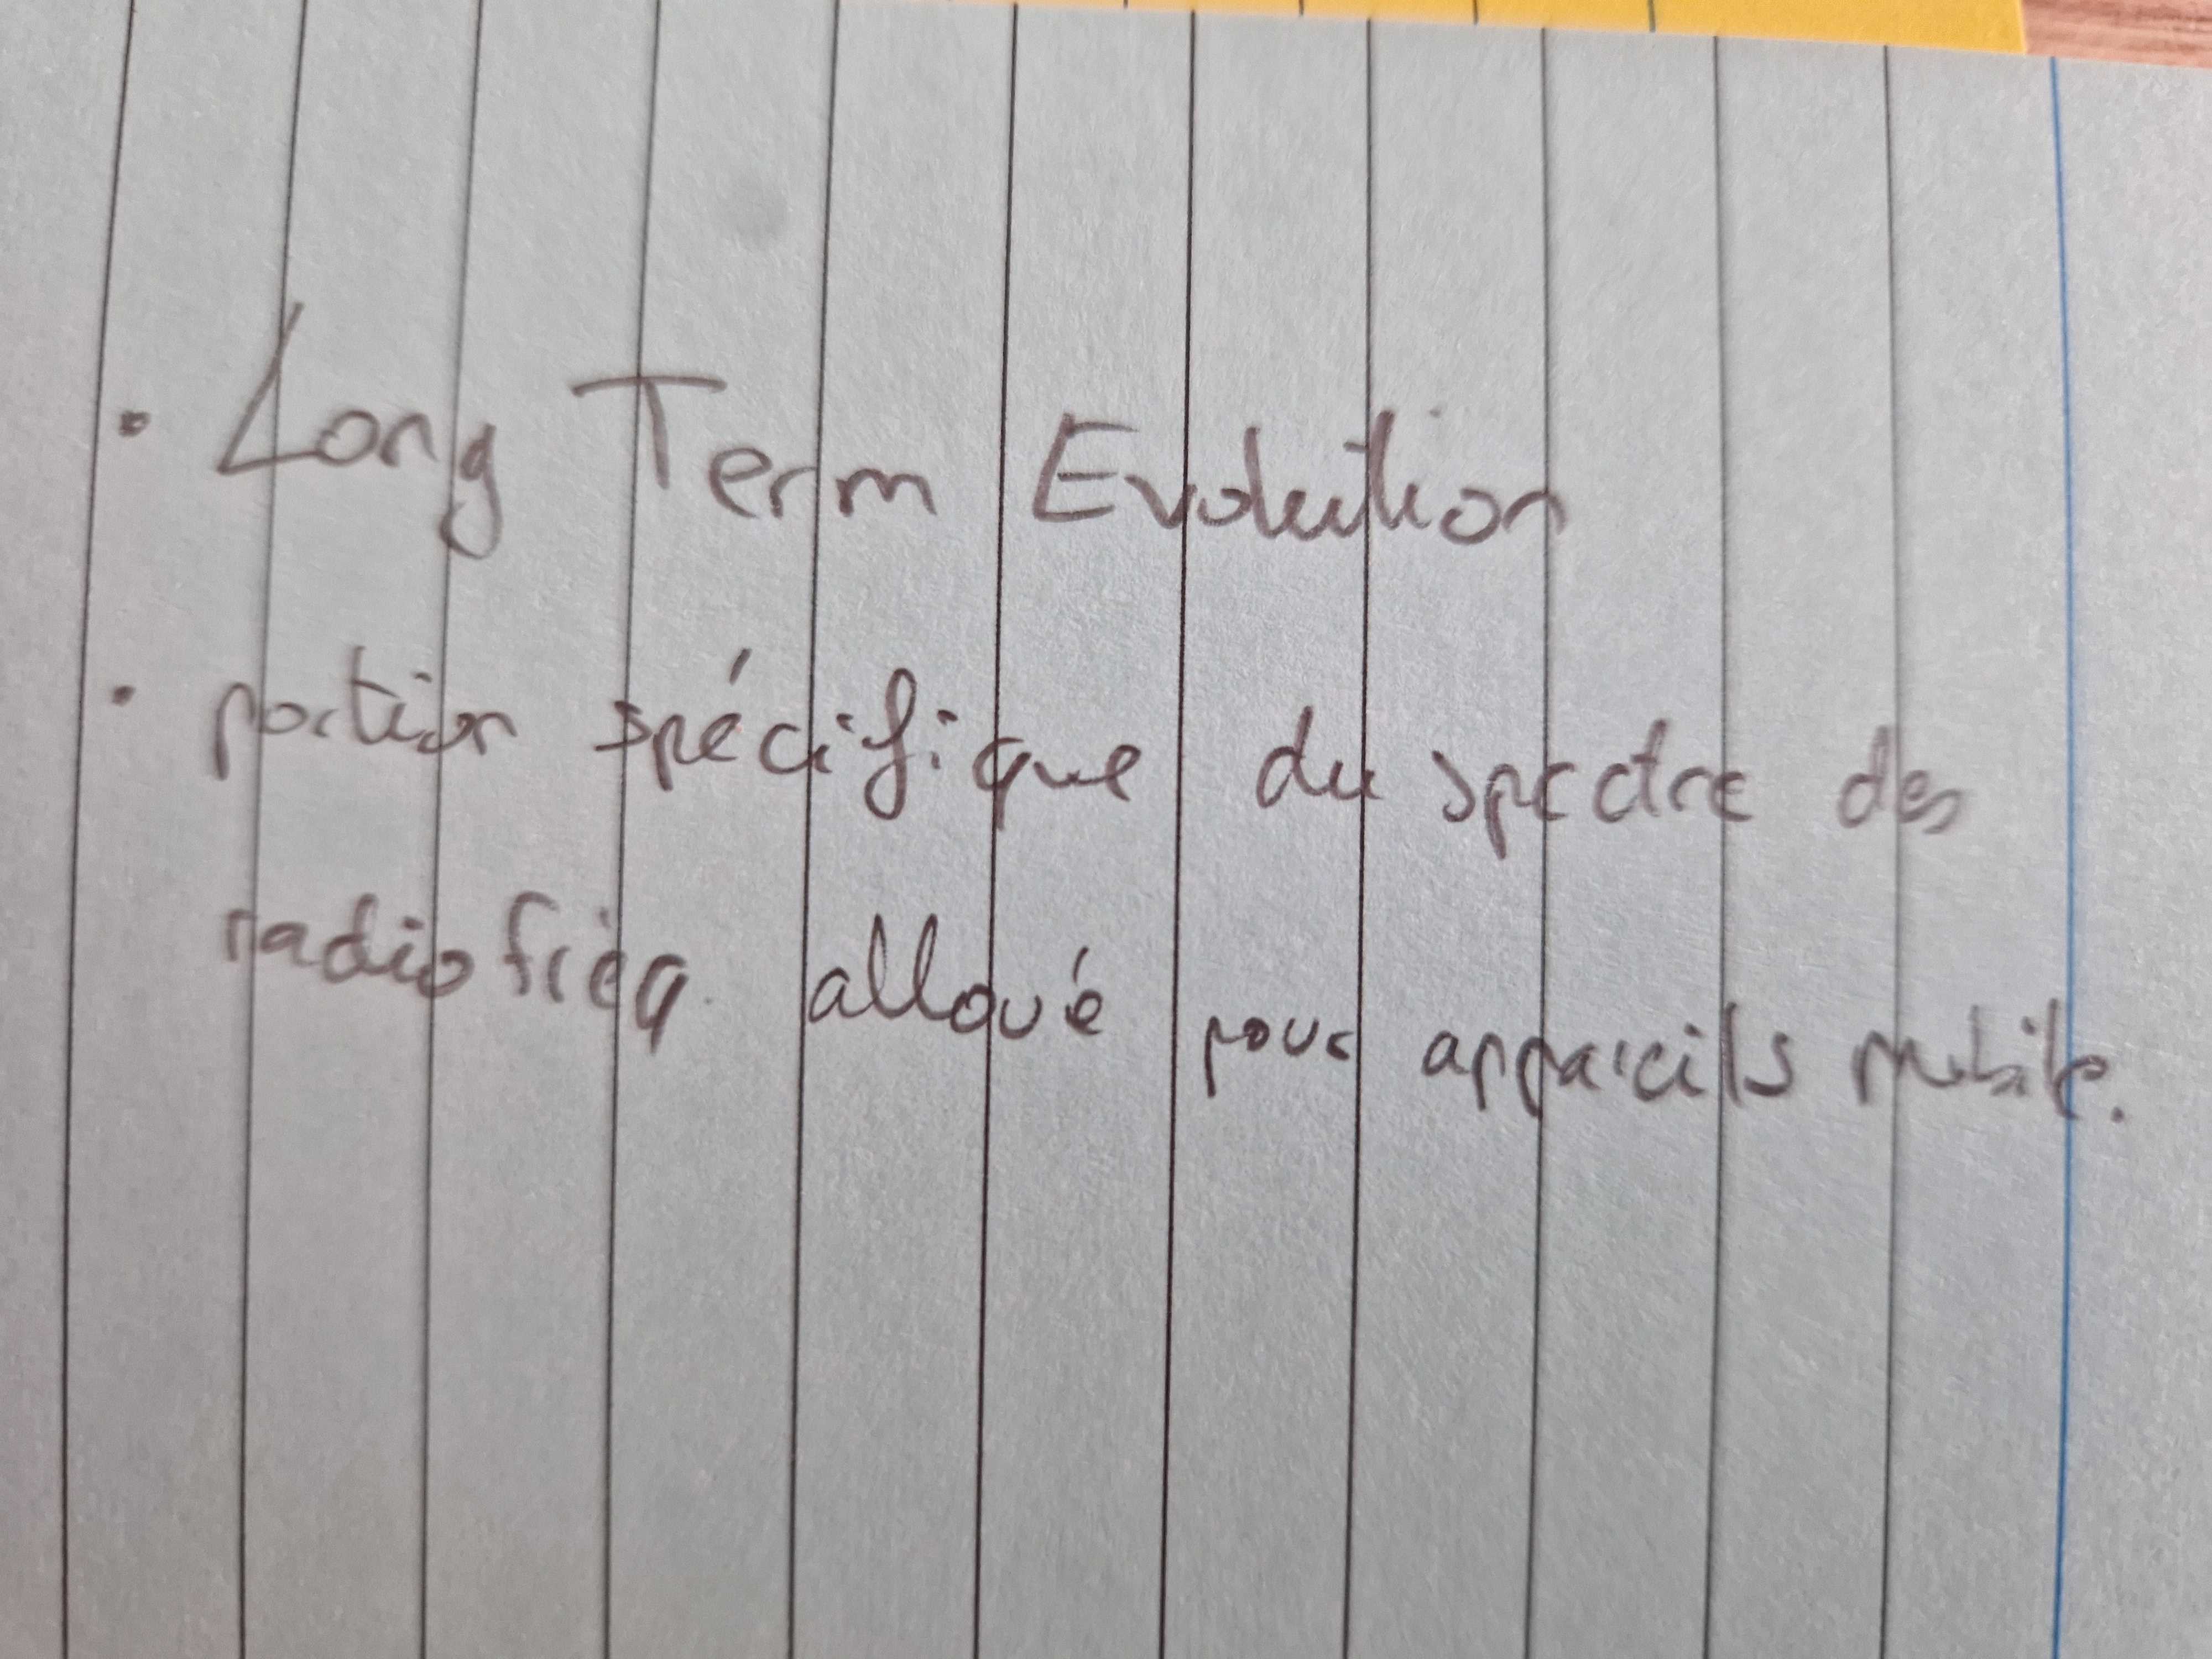 • Long Term Evolution
• portion spécifique du spectre des
radiofréq. alloué pour appareils mobile.